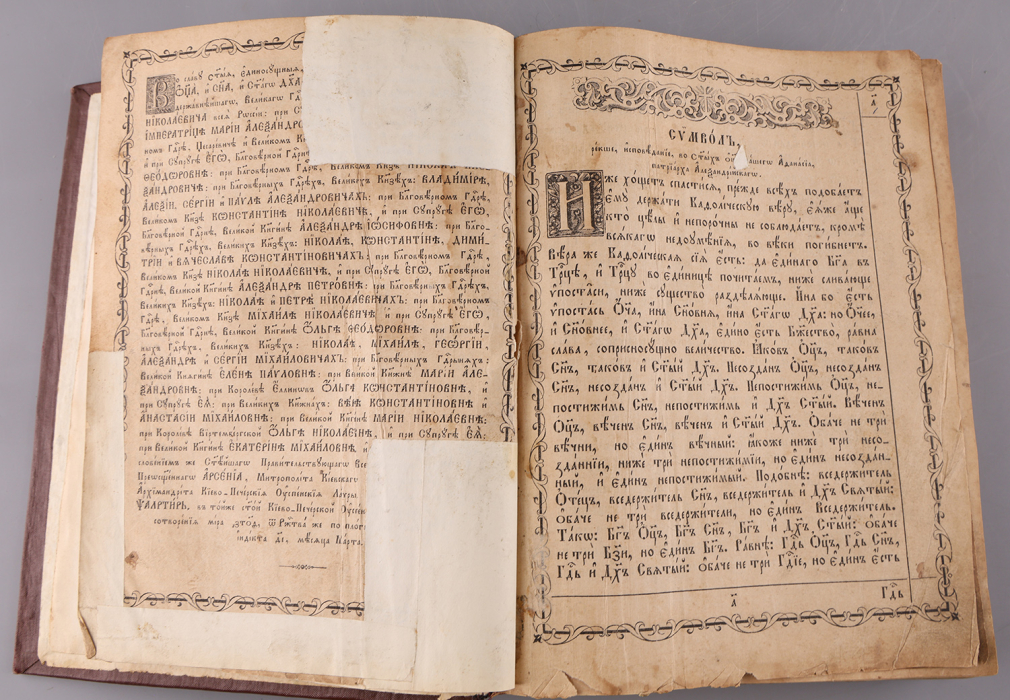 Во славу ст҃ыѧ, є҆диносꙋщныѧ,
Ѻ҆ц҃а, и҆ сн҃а, и҆ ст҃агѡ дх҃а
державнѣйшагѡ, Великагѡ
НІКОЛАЕВИЧА всеѧ Рѡссіи: при
ІМПЕРАТРИЦѢ МАРІИ АЛЕѮАНДРО
и҆ при Сꙋпрꙋгѣ ЄГѠ, Благовѣрной
ѲЕОДѠРОВНѢ: при Благовѣрномъ
ѮАНДРОВИЧѢ: при Благовѣрныхъ Гдⷭ҇рѣхъ, Великихъ Кнѧ҃зѣхъ: ВЛАДИМІРѢ,
АЛЕѮІИ, СЕРГІИ и҆ ПАѴЛѢ АЛЕѮАНДРОВИЧАХЪ: при Благовѣрномъ Гдⷭ҇рѣ,
Великомъ Кнѧ҃зѣ КѠНСТАНТІНѢ НІКОЛАЕВИЧѢ, и҆ при Сꙋпрꙋгѣ ЄГѠ,
Благовѣрной Гдⷭ҇рнѣ АЛЕѮАНДРѢ ІѠСИФОВНѢ: при Благо-
вѣрныхъ Гдⷭ҇рѣхъ, Великихъ Кнѧ҃зѣхъ: НІКОЛАѢ, КѠНСТАНТІНѢ, ДИМИ-
ТРІИ и҆ ВѦЧЕСЛАВѢ КѠНСТАНТІНОВИЧАХЪ: при Благовѣрномъ Гдⷭ҇рѣ,
Великомъ Кнѧ҃зѣ НІКОЛАѢ НІКОЛАЕВИЧѢ, и҆ при Сꙋпрꙋгѣ ЄГѠ, Благовѣрной
Гдⷭ҇рнѣ, Великой Кнѧги҃нѣ АЛЕѮАНДРѢ ПЕТРОВНѢ: при Благовѣрныхъ Гдⷭ҇рѣхъ,
Великихъ Кнѧ҃зѣхъ: НІКОЛАѢ и҆ ПЕТРѢ НІКОЛАЕВИЧАХЪ: при Благовѣрномъ
Гдⷭ҇рѣ, Великомъ Кнѧ҃зѣ МІХАИЛѢ НІКОЛАЕВИЧѢ и҆ при Сꙋпрꙋгѣ ЄГѠ,
Благовѣрной Гдⷭ҇рнѣ, Великой Кнѧги҃нѣ ѺЛЬГѢ ѲЕОДѠРОВНѢ: при Благовѣр-
ныхъ Гдⷭ҇рѣхъ, Великихъ Кнѧ҃зѣхъ: НІКОЛАѢ, МІХАИЛѢ, ГЕѠРГІИ,
АЛЕѮАНДРѢ и҆ СЕРГІИ МІХАИЛОВИЧАХЪ: при Благовѣрныхъ Гдⷭ҇рынѧхъ:
Великой Княгинѣ ЕЛЕНѢ ПАѴЛОВНѢ: при Великой Кнѧжнѣ МАРІИ АЛЕ-
ѮАНДРОВНѢ: при Королевѣ Єллинѡвъ ѺЛЬГѢ КѠНСТАНТІНОВНѢ, и҆
при Сꙋпрꙋгѣ ЄѦ: при Великихъ Кнѧжнахъ: ВѢРѢ КѠНСТАНТІНОВНѢ и҆
АНАСТАСІИ МІХАИЛОВНѢ: при Великой Кнѧги҃нѣ МАРІИ НІКОЛАЕВНѢ:
при Королевѣ Віртембургской ѺЛЬГѢ НІКОЛАЕВНѢ, и҆ при Сꙋпрꙋгѣ ЄѦ:
при Великой Кнѧги҃нѣ ЕКАТЕРІНѢ МІХАИЛОВНѢ, и҆
словеніемъ же Ст҃ѣйшагѡ Правительствꙋющагѡ Все
Преѡсщ҃еннагѡ АРСЕНІА, Митрополіта Кіевскагѡ
Архімандріта Кіево-Печерскіѧ Оу҆спенскіѧ Лаѵры
ѰАЛТИРЬ, въ тойже ст҃ой Кіево-Печерской Оу҆спен
сотворенія міра ,зтоа, ѿ Рⷤтва же по плоти
індікта аі, мѣсѧца Марта.
а҃
СѴ́МВОЛЪ,
си́рѣчь, и҆сповѣ́данїе, во ст҃ы́хъ ѻ҆ц҃а̀ на́шегѡ А҆ѳана́сїа,
патрїа́рха А҆леѯандрі́йскагѡ.
И́же хо́щетъ спасти́сѧ, пре́жде всѣ́хъ подоба́етъ
є҆мꙋ̀ держа́ти Каѳоли́ческꙋю вѣ́рꙋ, є҆ѧ́же а҆́ще
кто̀ цѣ́лы и҆ непоро́чны не соблюда́етъ, кромѣ̀
всѧ́кагѡ недоꙋмѣ́нїѧ, во вѣ́ки поги́бнетъ.
Вѣ́ра же Каѳоли́ческаѧ сїѧ̀ є҆́сть: да є҆ди́наго Бг҃а въ
Трⷪ҇цѣ, и҆ Трⷪ҇цꙋ во є҆ди́ницѣ почита́емъ, нижѐ слива́юще
ѵ҆поста̑си, нижѐ сꙋщество̀ раздѣлѧ́юще. И҆́на бо є҆́сть
ѵ҆поста́сь Ѻ҆́ч҃а, и҆́на Сн҃о́внѧ, и҆́на Ст҃а́гѡ Дх҃а: но Ѻ҆́ч҃ее,
и҆ Сн҃о́внее, и҆ Ст҃а́гѡ Дх҃а, є҆ди́но є҆́сть Бж҃ество̀, ра́вна
сла́ва, соприсносꙋ́щно вели́чество. Ꙗ҆ко́въ Ѻ҆ц҃ъ, тако́въ
Сн҃ъ, тако́въ и҆ Ст҃ы́й Дх҃ъ. Несозда́нъ Ѻ҆ц҃ъ, несозда́нъ
Сн҃ъ, несозда́нъ и҆ Ст҃ы́й Дх҃ъ. Непостижи́мь Ѻ҆ц҃ъ, не-
постижи́мь Сн҃ъ, непостижи́мь и҆ Дх҃ъ Ст҃ы́й. Вѣ́ченъ
Ѻ҆ц҃ъ, вѣ́ченъ Сн҃ъ, вѣ́ченъ и҆ Ст҃ы́й Дх҃ъ. Ѻ҆ба́че не трѝ
вѣ̑чни, но є҆ди́нъ вѣ́чный: ꙗ҆́коже нижѐ трѝ несо-
зда́ннїи, нижѐ трѝ непостижи́мїи, но є҆ди́нъ несозда́н-
ный, и҆ є҆ди́нъ непостижи́мый. Подо́бнѣ: вседержи́тель
Ѻ҆те́цъ, вседержи́тель Сн҃ъ, вседержи́тель и҆ Дх҃ъ Свѧты́й:
ѻ҆ба́че не трѝ вседержи́тели, но є҆ди́нъ Вседержи́тель.
Та́кѡ: Бг҃ъ Ѻ҆ц҃ъ, Бг҃ъ Сн҃ъ, Бг҃ъ и҆ Дх҃ъ Ст҃ы́й: ѻ҆ба́че
не трѝ Бз҃и, но є҆ди́нъ Бг҃ъ. Ра́внѣ: Гдⷭ҇ь Ѻ҆ц҃ъ, Гдⷭ҇ь Сн҃ъ,
Гдⷭ҇ь и҆ Дх҃ъ Свѧты́й: ѻ҆ба́че не трѝ Гдⷭ҇їе, но є҆ди́нъ є҆́сть
а҃
Гдⷭ҇ь